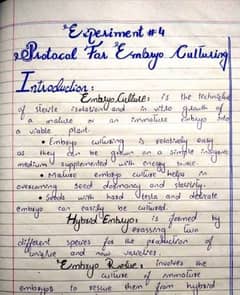 Experiment #4
Protocol For Embryo Culturing
Introduction:
Embryo Culture: is the technique
of sterile isolation and in vitro growth of
a mature or an immature embryo into
a viable plant.
• Embryo culturing is relatively easy
as they can be grown on a simple inorganic
medium supplemented with energy source.
• Mature embryo culture helps in
overcoming seed dormancy and sterility.
• Seeds with hard testa and delicate
embryo can easily be cultured.
Hybrid Embryo: is formed by
crossing two
different species for the production of
unique and new varieties.
Embryo Rescue: involves the
culture of immature
embryos to rescue them from hybrid